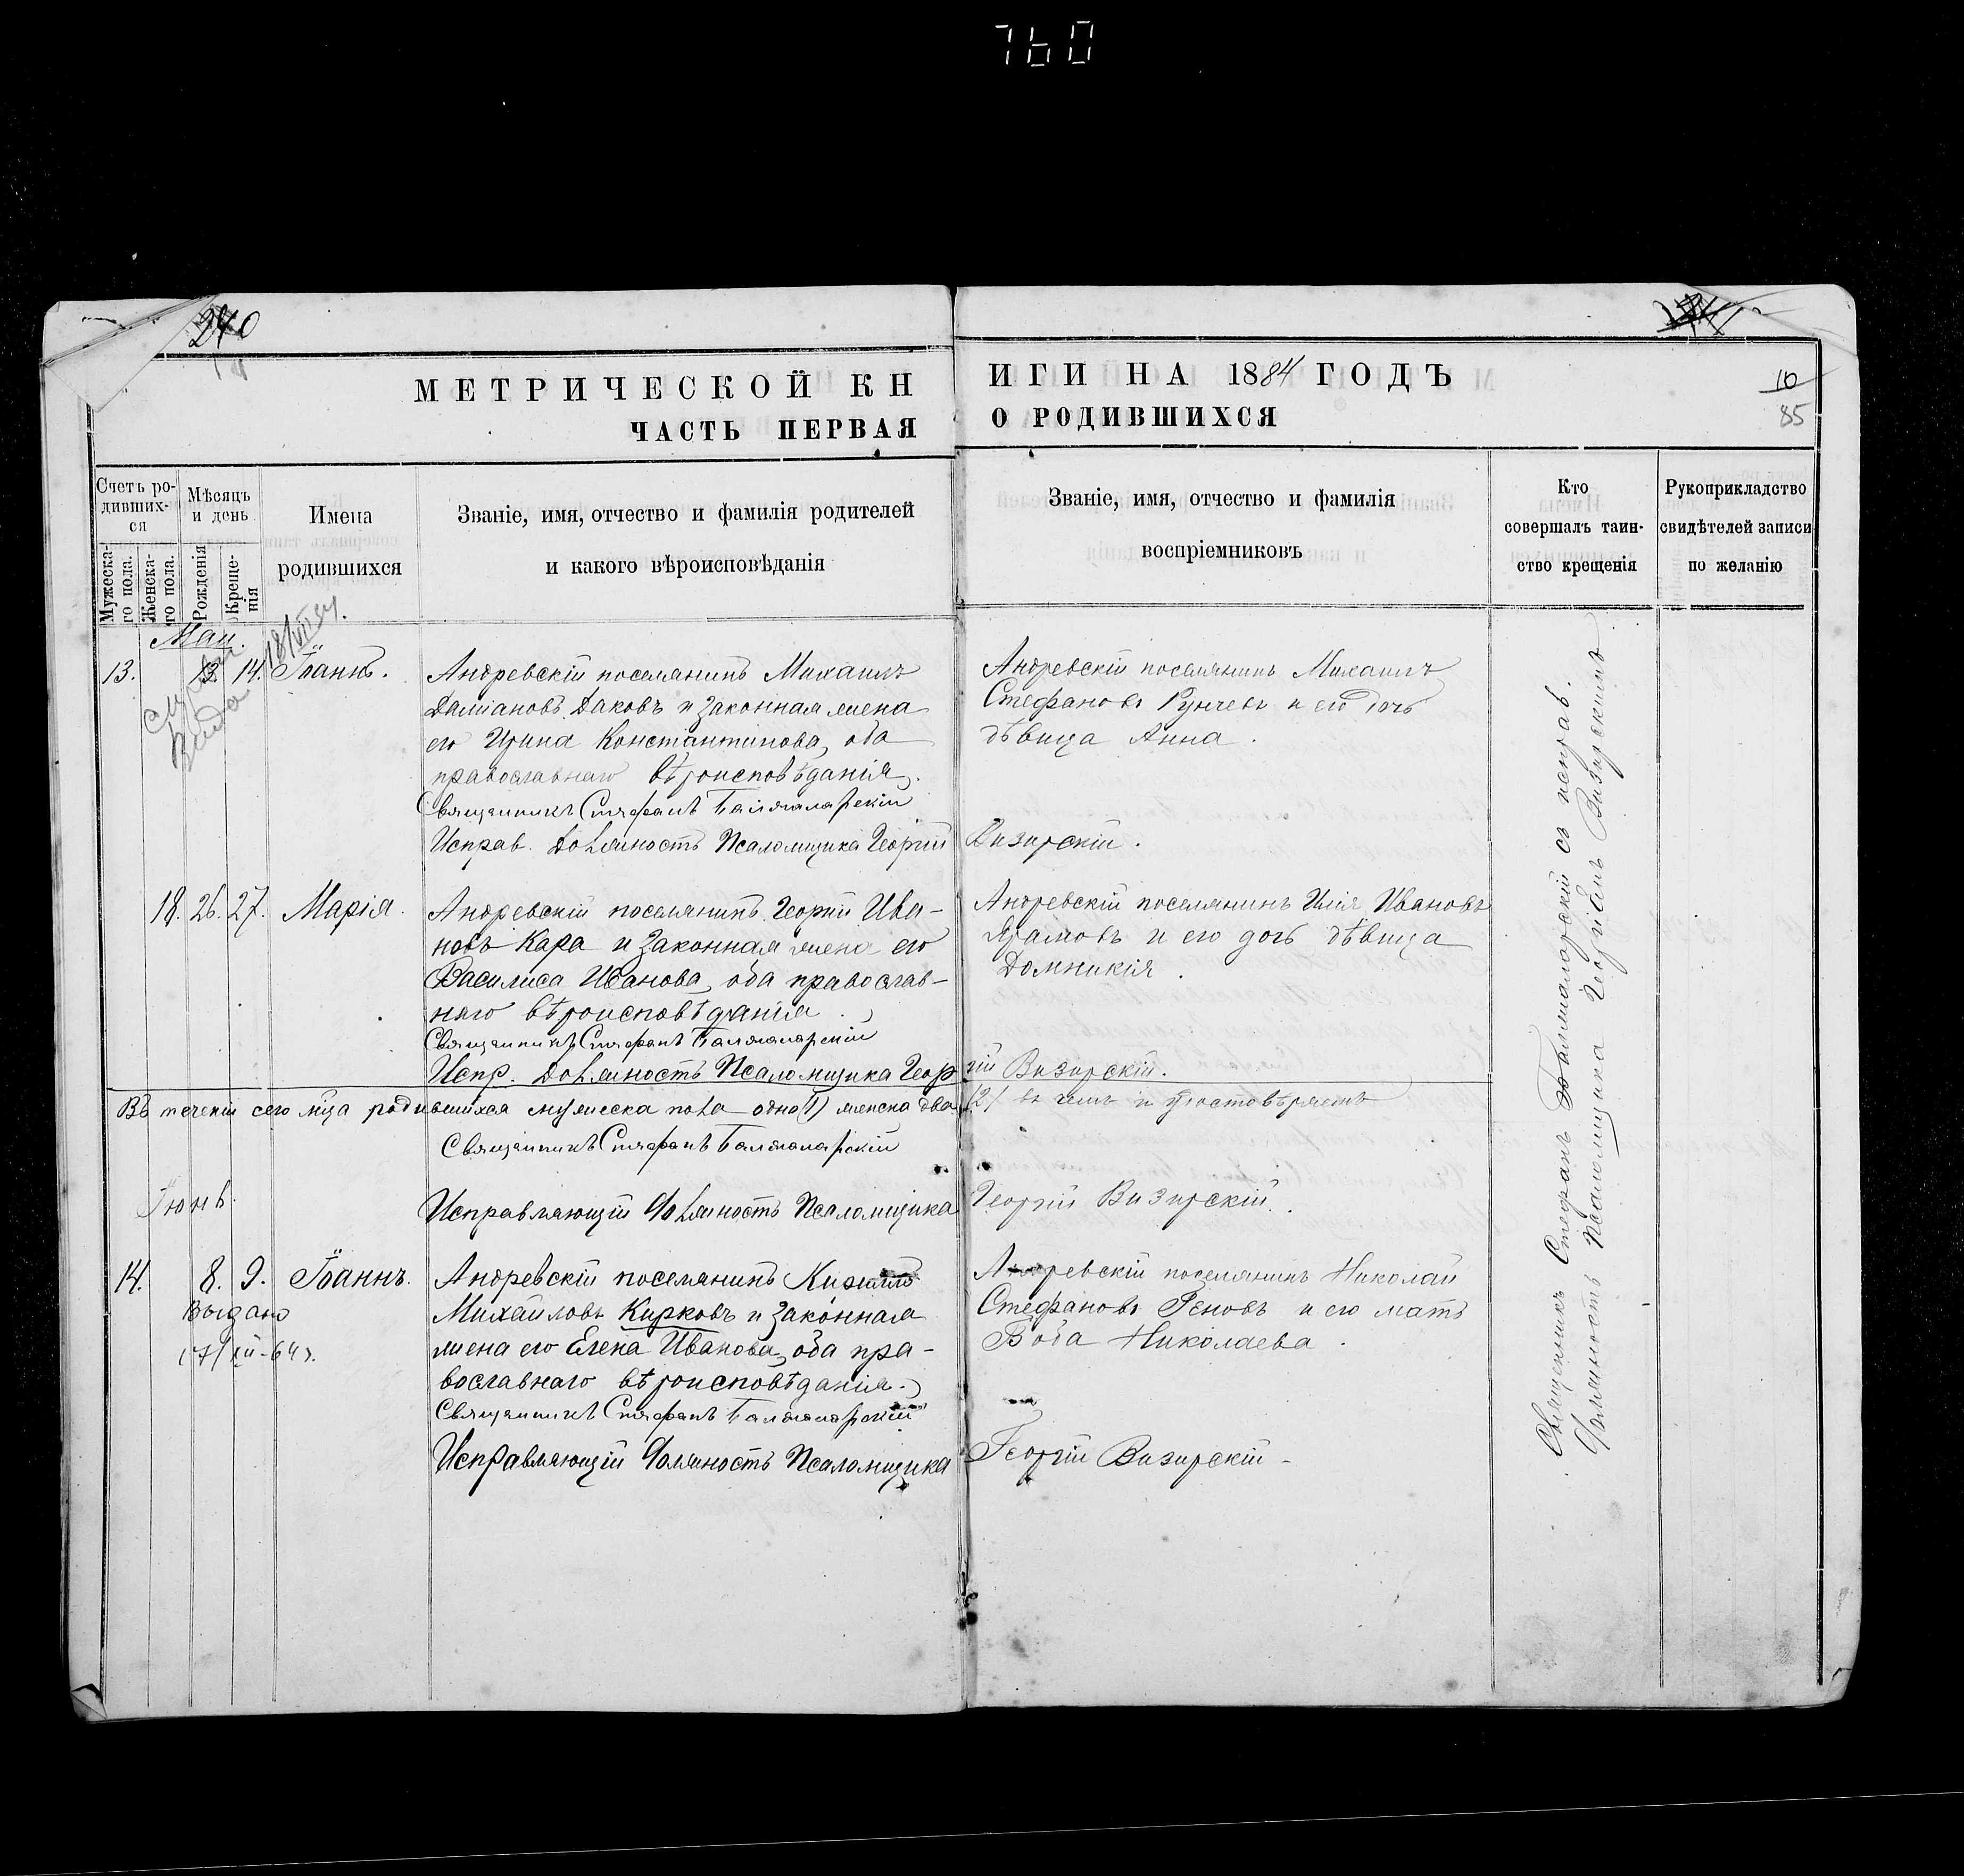 760
240
МЕТРИЧЕСКОЙ КН
ИГИ НА 1884 ГОДЪ
ЧАСТЬ ПЕРВАЯ
О РОДИВШИХСЯ
10
85
Счетъ ро-
дивших-
ся
Мужеска-
го пола.
Женска-
го пола.
Мѣсяцъ
и день
Рожденія
Креще-
нія
Имена
родившихся
Званіе, имя, отчество и фамилія родителей
и какого вѣроисповѣданія
Званіе, имя, отчество и фамилія
воспріемниковъ
Кто
совершалъ таин-
ство крещенія
Рукоприкладство
свидѣтелей записи
по желанію
Маи.
18/VII 34.
13. 13. 14. Іоаннъ.
Андревскій поселянинъ Михаилъ
Даміановъ Даковъ и законная жена
его Ирина Константинова, оба
православнаго вѣроисповѣданія.
Священникъ Стефанъ Балжаларскій
Исправ. Должность Псаломщика Георгій Визирскій.
Андревскій поселянинъ Михаилъ
Стефановъ Рунчевъ и его дочь
дѣвица Анна.
18. 26. 27. Марія.
Андревскій поселянинъ Георгій Ива-
новъ Кара и законная жена его
Василиса Иванова, оба православ-
наго вѣроисповѣданія.
Священникъ Стефанъ Балжаларскій
Испр. Должность Псаломщика Георгій Визирскій.
Андревскій поселянинъ Илія Ивановъ
и его дочь дѣвица
Домникія.
Въ теченіи сего мѣца родившихся мужеска пола одно (1) женска два (2) въ чемъ и удостовѣряемъ
Священникъ Стефанъ Балжаларскій
Исправляющій Должность Псаломщика Георгій Визирскій.
Іюнь.
14. 8. 9. Іоаннъ.
Выдано
17/XII-64г.
Андревскій поселянинъ
Михаиловъ Кирковъ и законная
жена его Елена Иванова, оба пра-
вославнаго вѣроисповѣданія.
Священникъ Стефанъ Балжаларскій
Исправляющій Должность Псаломщика Георгій Визирскій
Андревскій поселянинъ Николай
Стефановъ Геновъ и его мать
Николаева.
Священникъ Стефанъ Балжаларскій съ исправ.
Должность Псаломщика Георгіемъ Визирскимъ